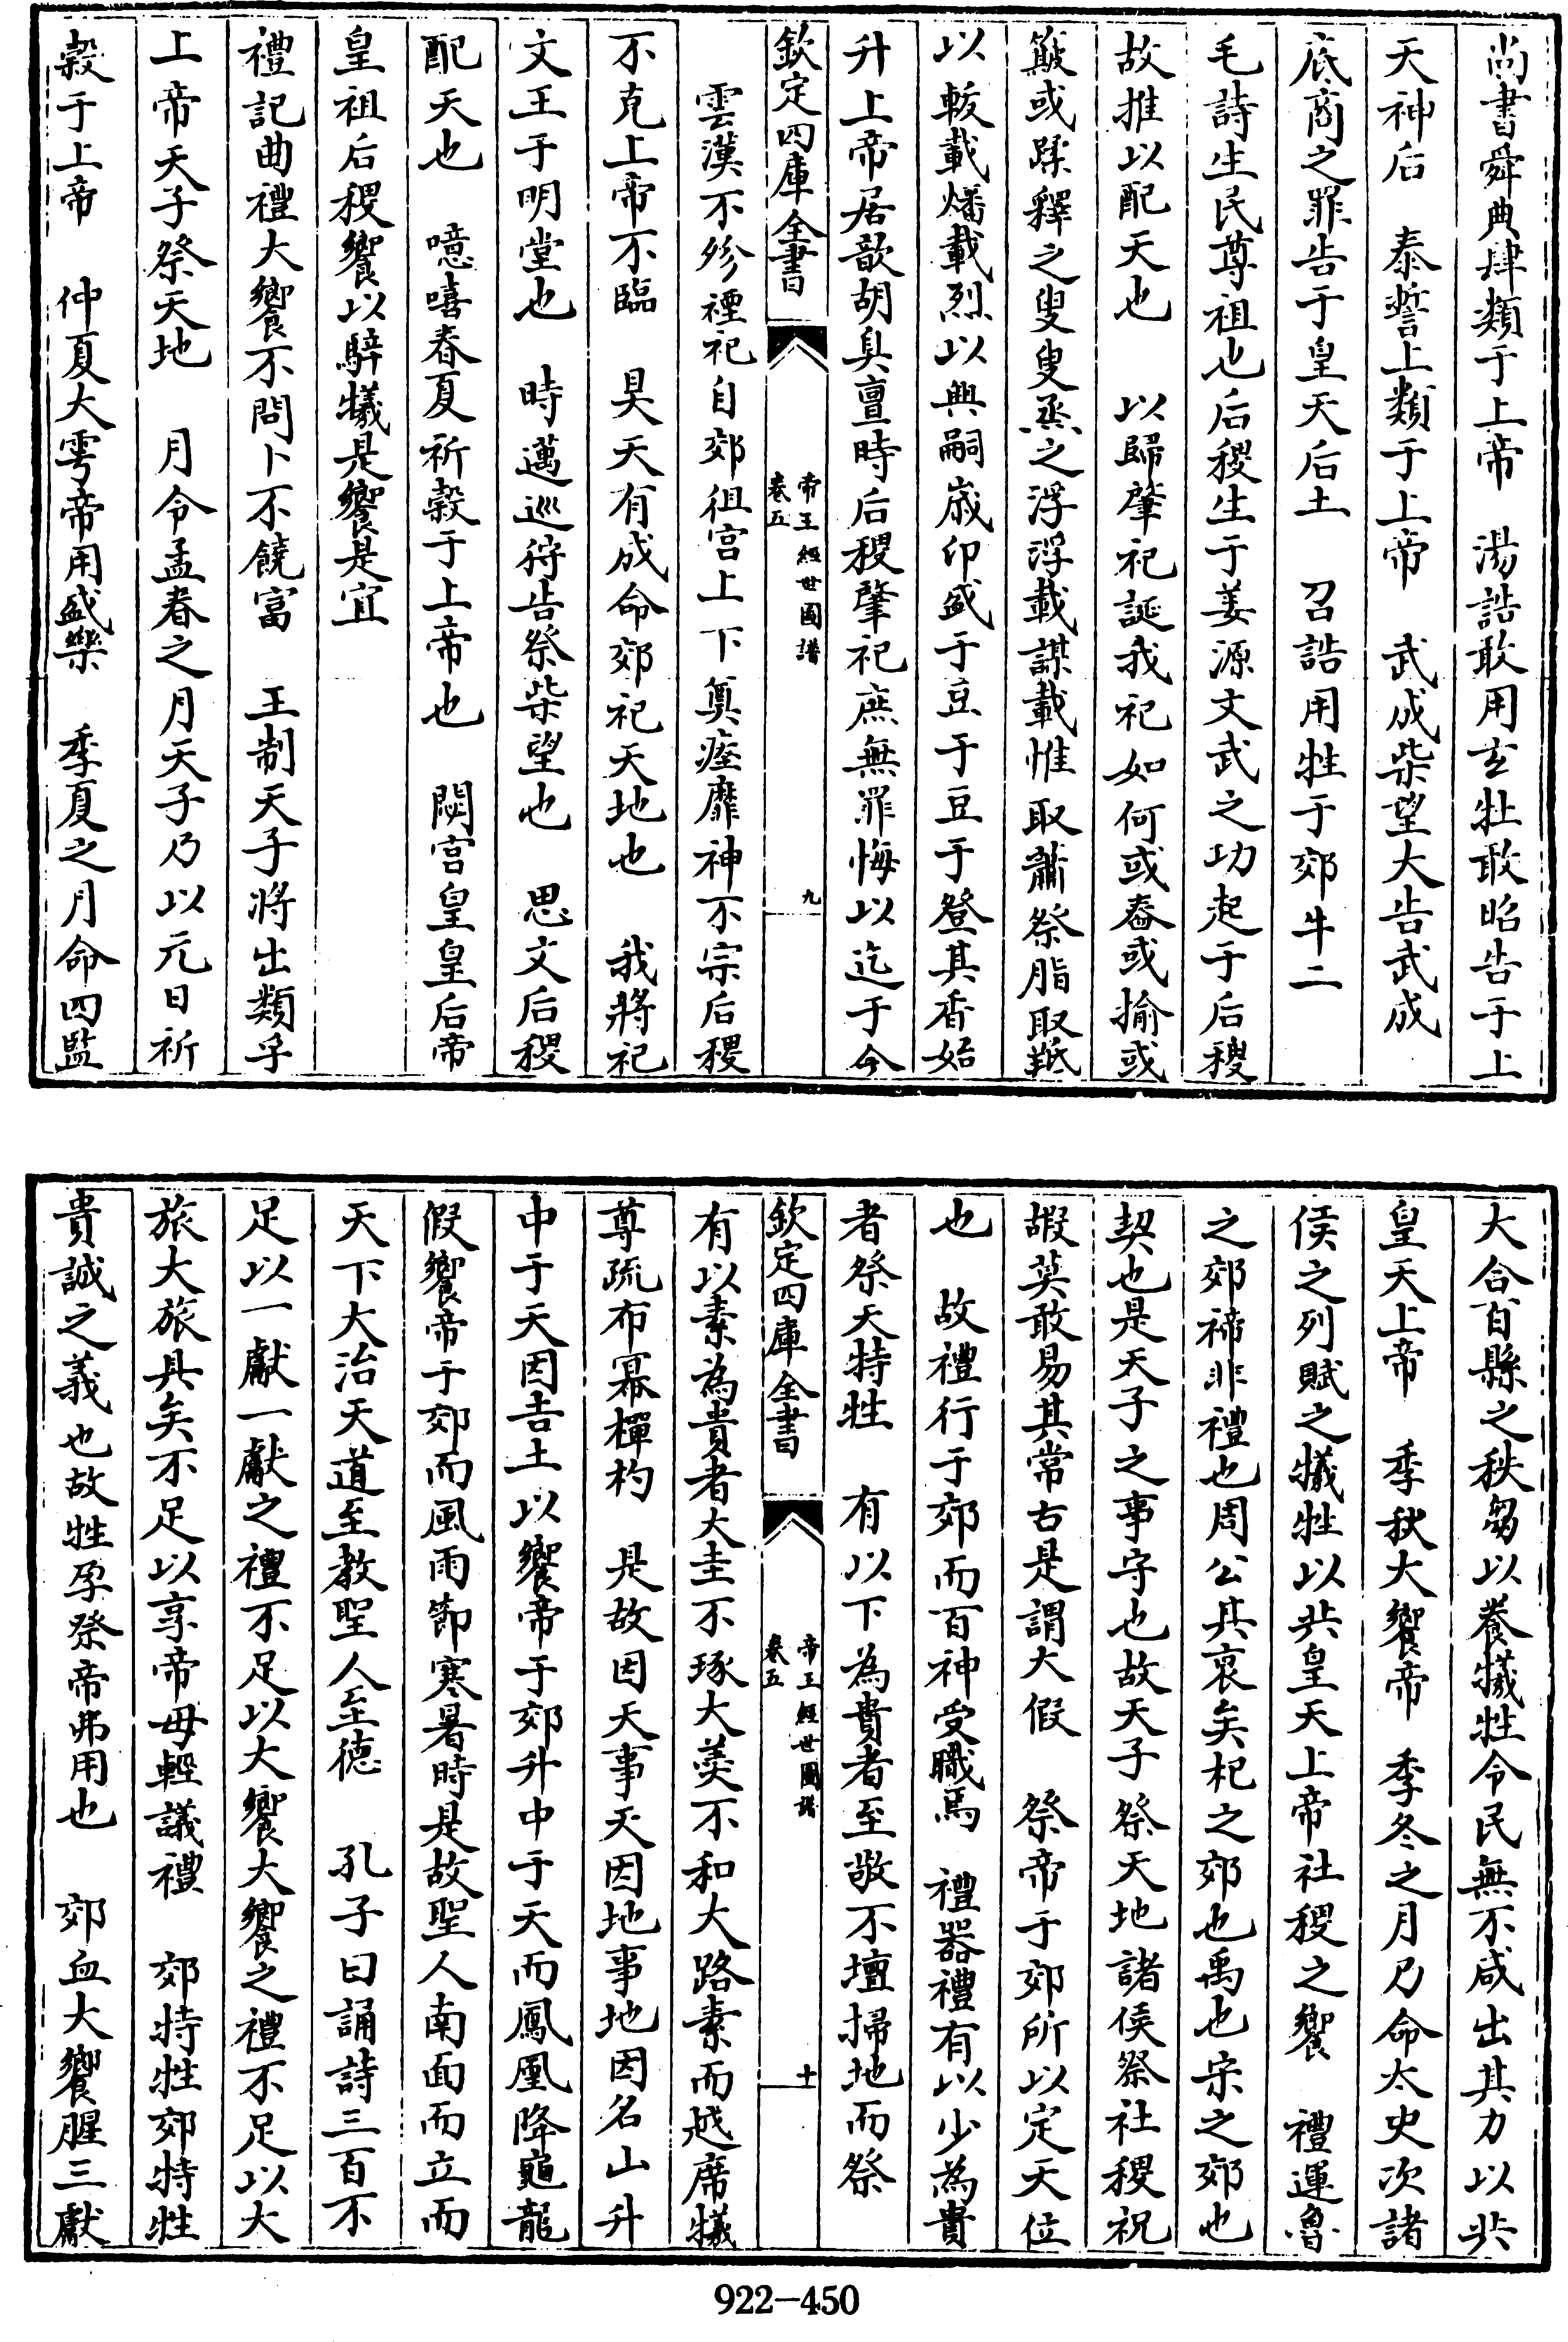 尚書舜典肆類于上帝　湯誥敢用玄牡敢昭告于上
天神后　泰誓上類于上帝　武成柴望大告武成
底商之罪告于皇天后土　召誥用牲于郊牛二
毛詩生民尊祖也后稷生于姜源文武之功起于后稷
故推以配天也　以歸肇祀誕我祀如何或舂或揄或
簸或蹂釋之叟叟烝之浮浮載謀載惟取蕭祭脂取羝
以軷載燔載烈以興嗣歲卬盛于豆于豆于登其香始
升上帝居歆胡臭亶時后稷肇祀庶無罪悔以迄于今
欽定四庫全書　帝王經世圖譜　卷五　九
雲漢不殄禋祀自郊徂宮上下奠瘞靡神不宗后稷
不克上帝不臨　昊天有成命郊祀天地也　我將祀
文王于明堂也　時邁巡狩告祭柴望也　思文后稷
配天也　噫嘻春夏祈穀于上帝也　閟宮皇皇后帝
皇祖后稷饗以騂犧是饗是宜
禮記曲禮大饗不問卜不饒富　王制天子將出類乎
上帝天子祭天地　月令孟春之月天子乃以元日祈
穀于上帝　仲夏大雩帝用盛樂　季夏之月命四監
大合百縣之秩芻以養犧牲令民無不咸出其力以共
皇天上帝　季秋大饗帝　季冬之月乃命太史次諸
侯之列賦之犧牲以共皇天上帝社稷之饗　禮運魯
之郊禘非禮也周公其衰矣杞之郊也禹也宋之郊也
契也是天子之事守也故天子祭天地諸侯祭社稷祝
嘏莫敢易其常古是謂大假　祭帝于郊所以定天位
也　故禮行于郊而百神受職焉　禮器禮有以少為貴
者祭天特牲　有以下為貴者至敬不壇掃地而祭
欽定四庫全書　帝王經世圖譜　卷五　十
有以素為貴者大圭不琢大羹不和大路素而越席犧
尊疏布冪樿杓　是故因天事天因地事地因名山升
中于天因吉土以饗帝于郊升中于天而鳳凰降龜龍
假饗帝于郊而風雨節寒暑時是故聖人南面而立而
天下大治天道至教聖人至德　孔子曰誦詩三百不
足以一獻一獻之禮不足以大饗大饗之禮不足以大
旅大旅具矣不足以享帝毋輕議禮　郊特牲郊特牲
貴誠之義也故牲孕祭帝弗用也　郊血大饗腥三獻
922-450